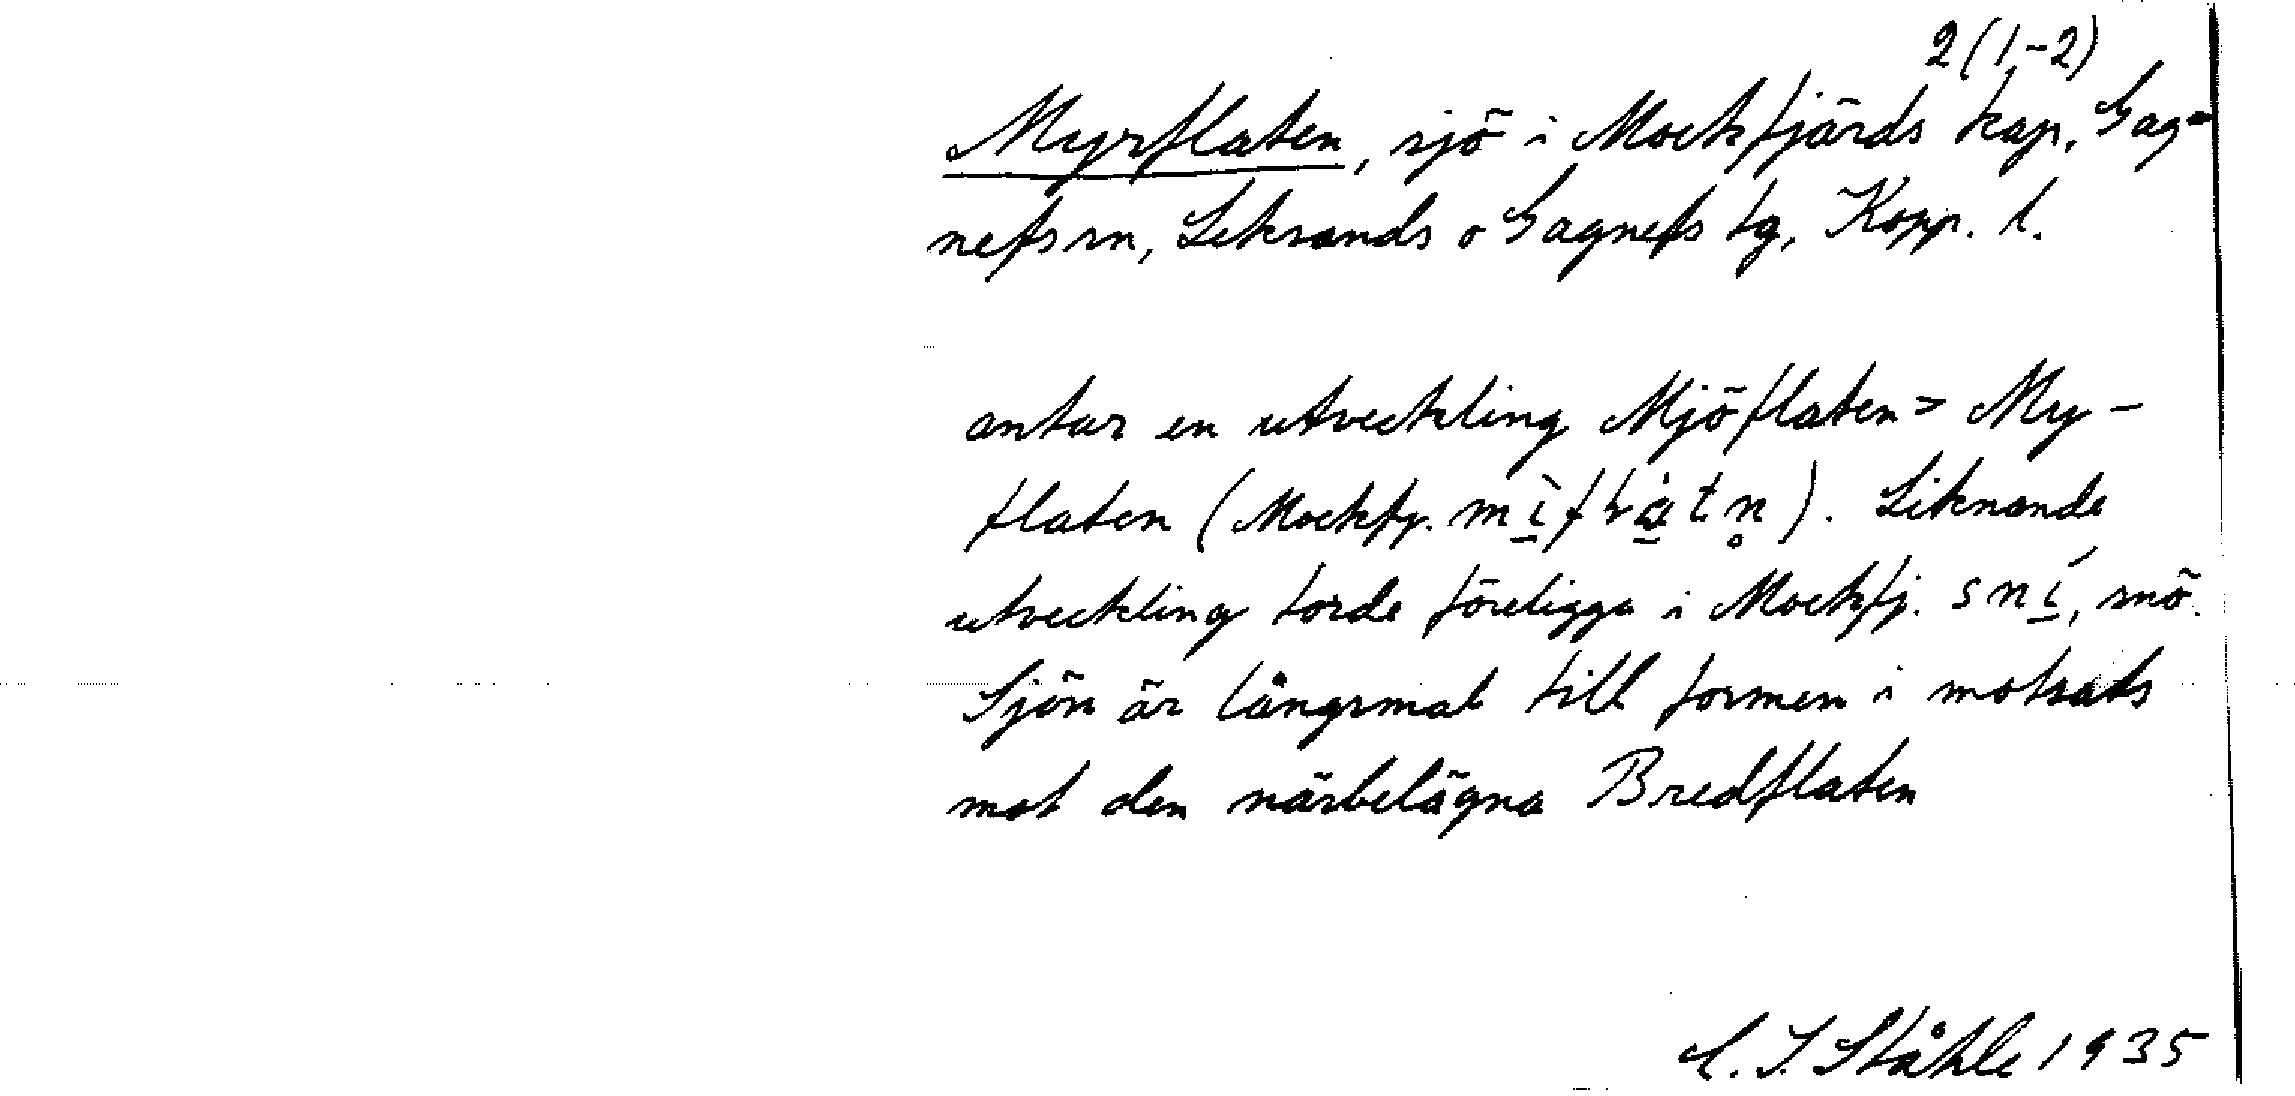 2(1-2)
Myrflaten, sjö i Mockfjärds kap, Gag=
nefs sn, Leksands o Gagnefs tg, Kopp. l.
antar en utveckling Mjöflaten > My-
flaten (Mockfj. ). Liknande
utveckling torde föreligga i Mockfj. sní, snö.
Sjön är långsmal till formen i motsats
mot den närbelägna Bredflaten
C. I. Ståhle 1935